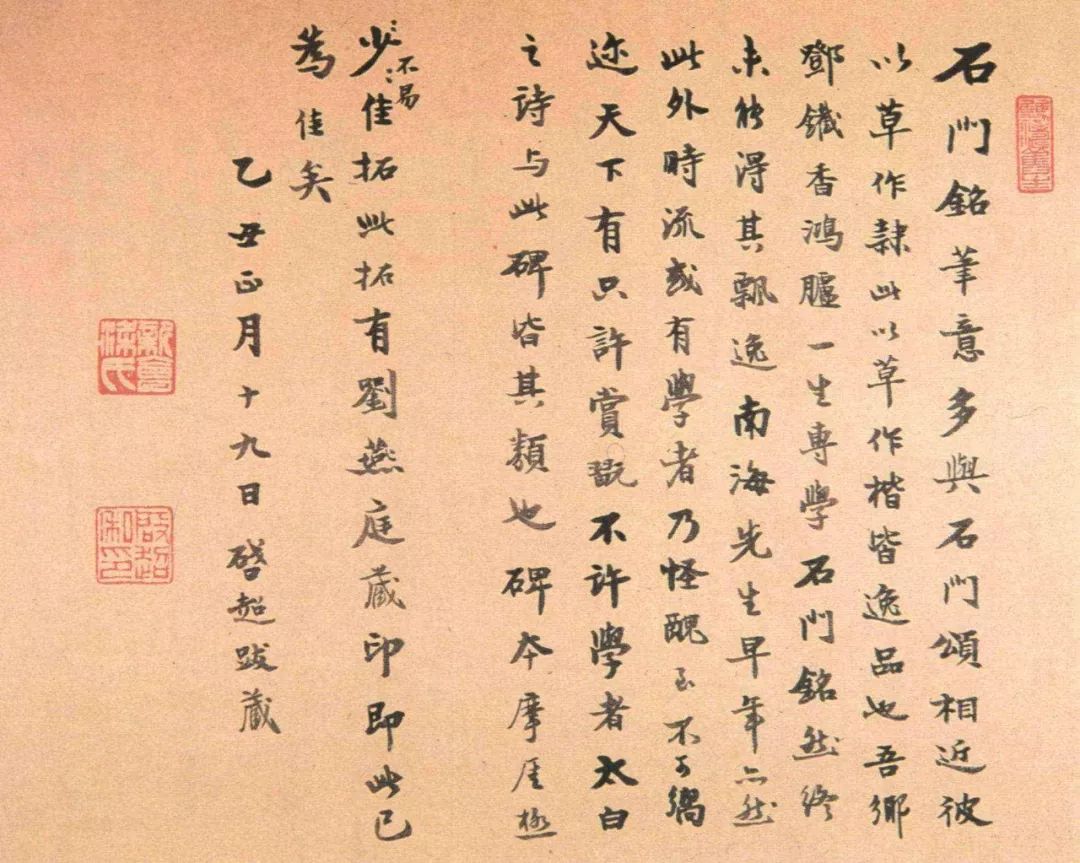 石門銘筆意多與石門頌相近彼
以草作隸此以草作楷皆逸品也吾鄉
鄧鐵香鴻臚一生専學石門銘然終
未能得其飄逸南海先生早年亦然
此外時流或有學者乃怪醜至不可嚮
迩天下有只許賞翫不許學者太白
之詩与此碑皆其類也碑本摩厓極
少佳拓此拓有劉燕庭藏印即此已
不易
為佳矣
乙丑正月十九日啓超跋藏
新會梁氏
啟超私印